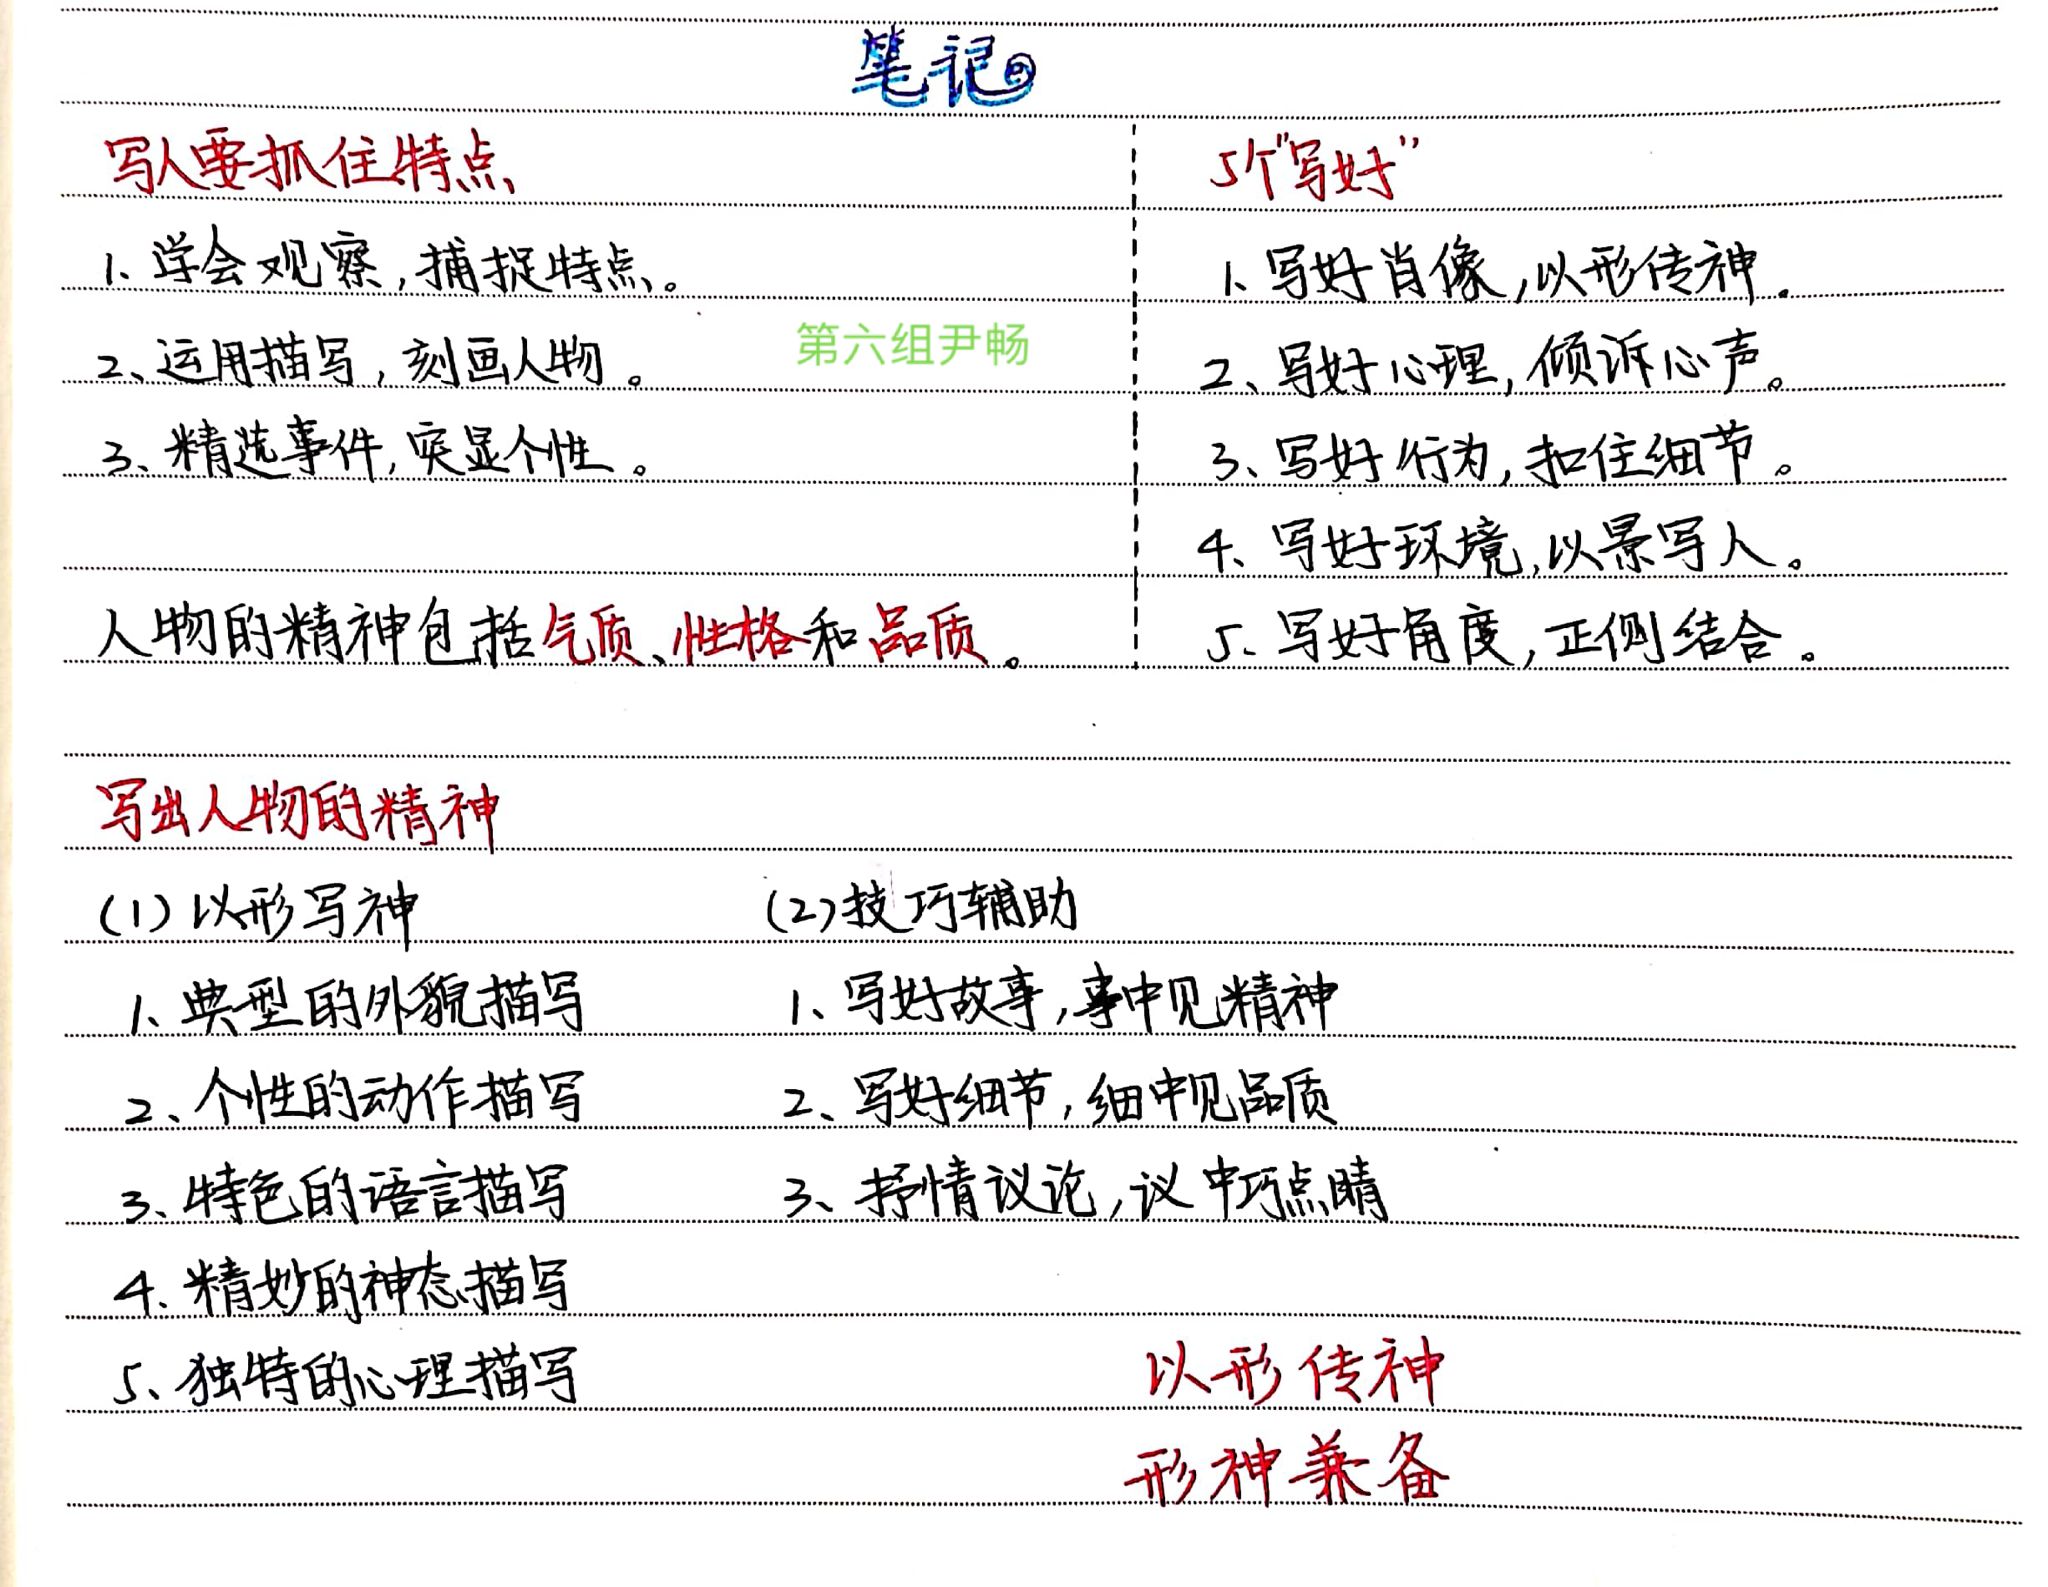 笔记
写人要抓住特点
1、学会观察,捕捉特点。
2、运用描写,刻画人物。
第六组尹畅
3、精选事件,突显个性。
人物的精神包括气质、性格和品质。
5个"写好"
1、写好肖像,以形传神。
2、写好心理,倾诉心声。
3、写好行为,扣住细节。
4、写好环境,以景写人。
5、写好角度,正侧结合。
写出人物的精神
(1)以形写神
1、典型的外貌描写
2、个性的动作描写
3、特色的语言描写
4、精妙的神态描写
5、独特的心理描写
(2)技巧辅助
1、写好故事,事中见精神
2、写好细节,细中见品质
3、抒情议论,议中巧点睛
以形传神
形神兼备